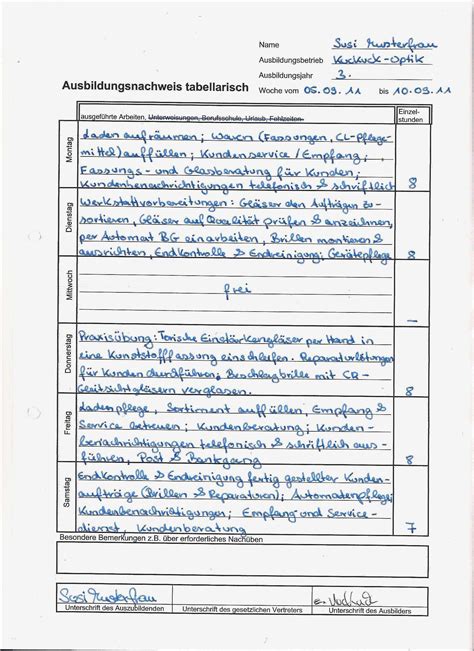 Name Susi Musterfrau
Ausbildungsbetrieb Kuckuck-Optik
Ausbildungsjahr 3.
Ausbildungsnachweis tabellarisch Woche vom 05.09.11 bis 10.09.11
ausgeführte Arbeiten, Unterweisungen, Berufsschule, Urlaub, Fehlzeiten Einzel-
stunden
Montag
Laden aufräumen; Waren (Fassungen, CL-Pflege-
mittel) auffüllen; Kundenservice/Empfang;
Fassungs- und Glasberatung für Kunden;
Kundenbenachrichtigungen telefonisch & schriftlich 8
Dienstag
Werkstattvorbereitungen: Gläser den Aufträgen zu-
sortieren, Gläser auf Qualität prüfen & anzeichnen,
per Automat BG einarbeiten, Brillen montieren &
ausrichten, Endkontrolle & Endreinigung; Gerätepflege 8
Mittwoch
frei —
Donnerstag
Praxisübung: Torische Einstärkengläser per Hand in
eine Kunststofffassung einschleifen. Reparaturleistungen
für Kunden durchführen; Beschlagbrille mit CR-
Gleitsichtgläsern verglasen. 8
Freitag
Ladenpflege, Sortiment auffüllen, Empfang &
Service betreuen; Kundenberatung; Kunden-
benachrichtigungen telefonisch & schriftlich aus-
führen, Post & Bankgang 8
Samstag
Endkontrolle & Endreinigung fertig gestellter Kunden-
aufträge (Brillen & Reparaturen); Automatenpflege;
Kundenbenachrichtigungen; Empfang und Service-
dienst, Kundenberatung 7
Besondere Bemerkungen z.B. über erforderliches Nachüben
Susi Musterfrau
Unterschrift des Auszubildenden Unterschrift des gesetzlichen Vertreters Unterschrift des Ausbilders